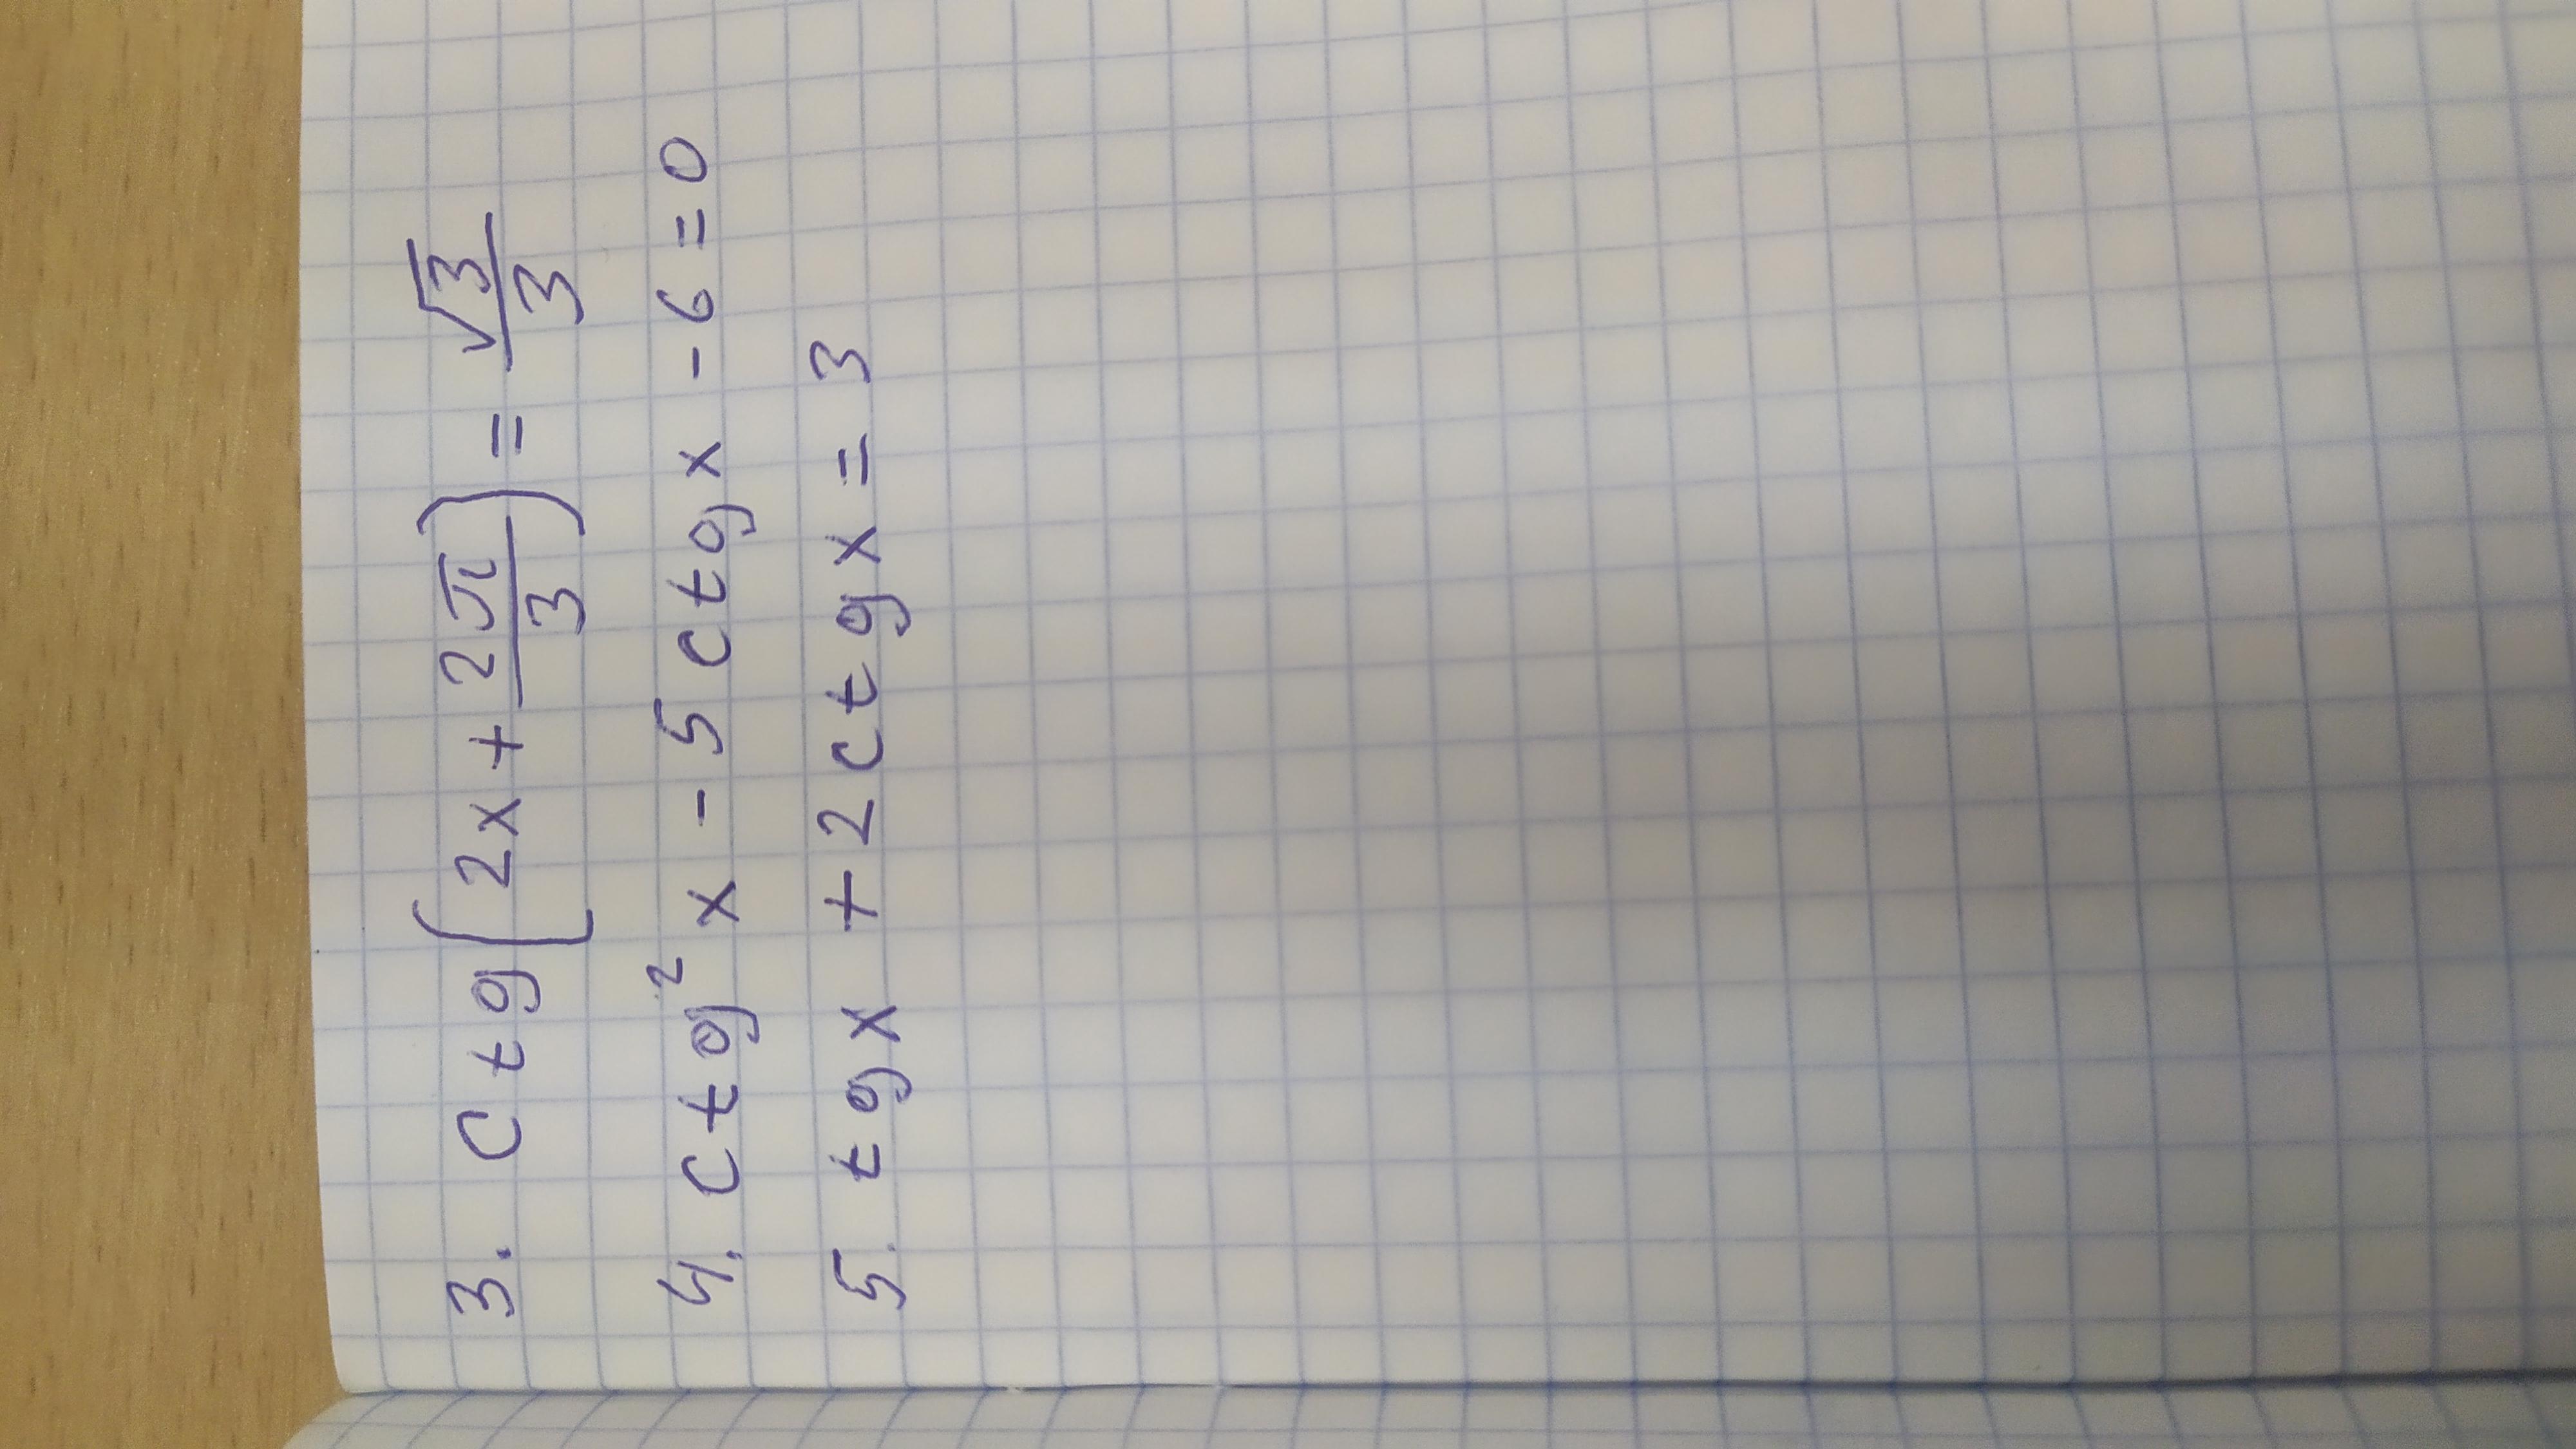 3. Ctg(2x + 2π/3) = √3/3
4. ctg² x - 5 ctg x - 6 = 0
5. tg x + 2 ctg x = 3